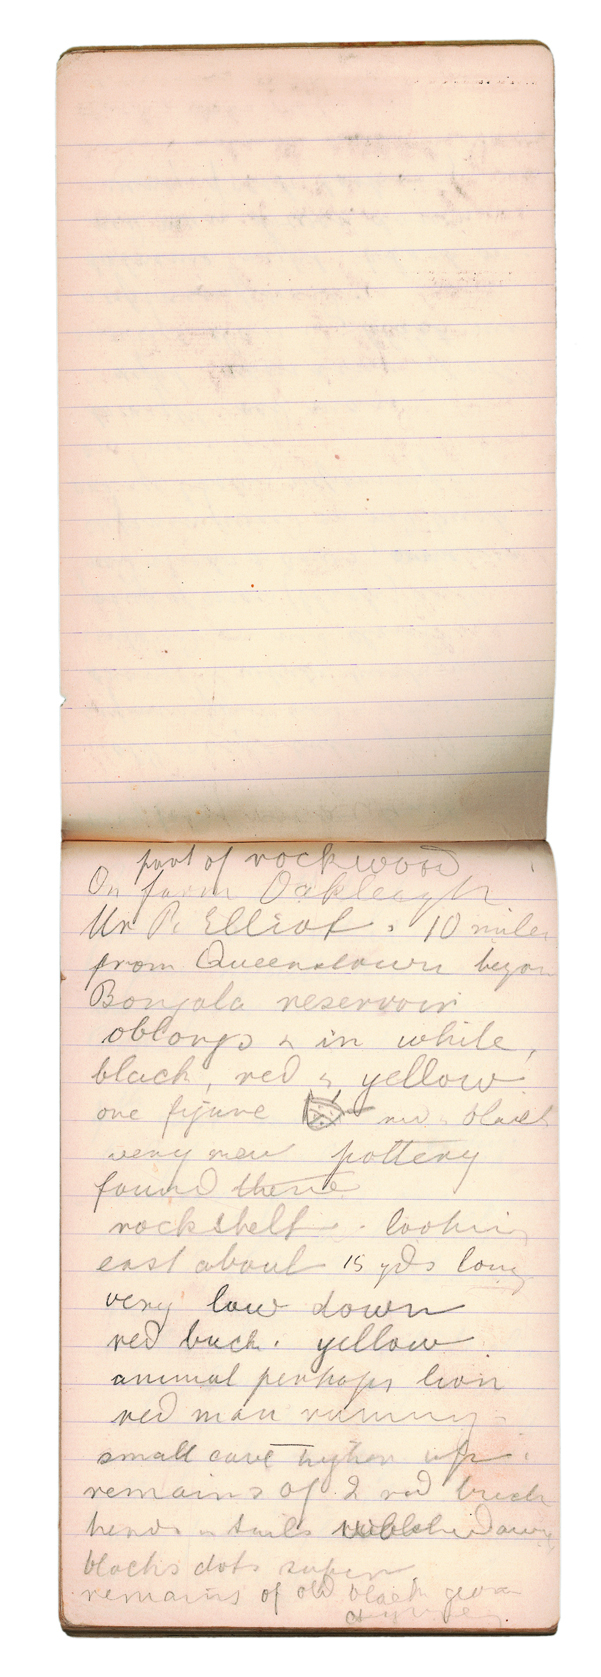 part of rockwood
On farm Oakleagh
Mr P. Elliot. 10 miles
from Queenstown beyon
Bongola reservoir
oblongs & in white,
black, red & yellow
one figure red & black
very new pottery
found there
rockshelt. lookin
east about 15 yds long
very low down
red buck. yellow
animal perhaps lion
red man running
small cave higher up.
remains of 2 red buck
heads & tails rubbled away
blacks dots super
remains of old black